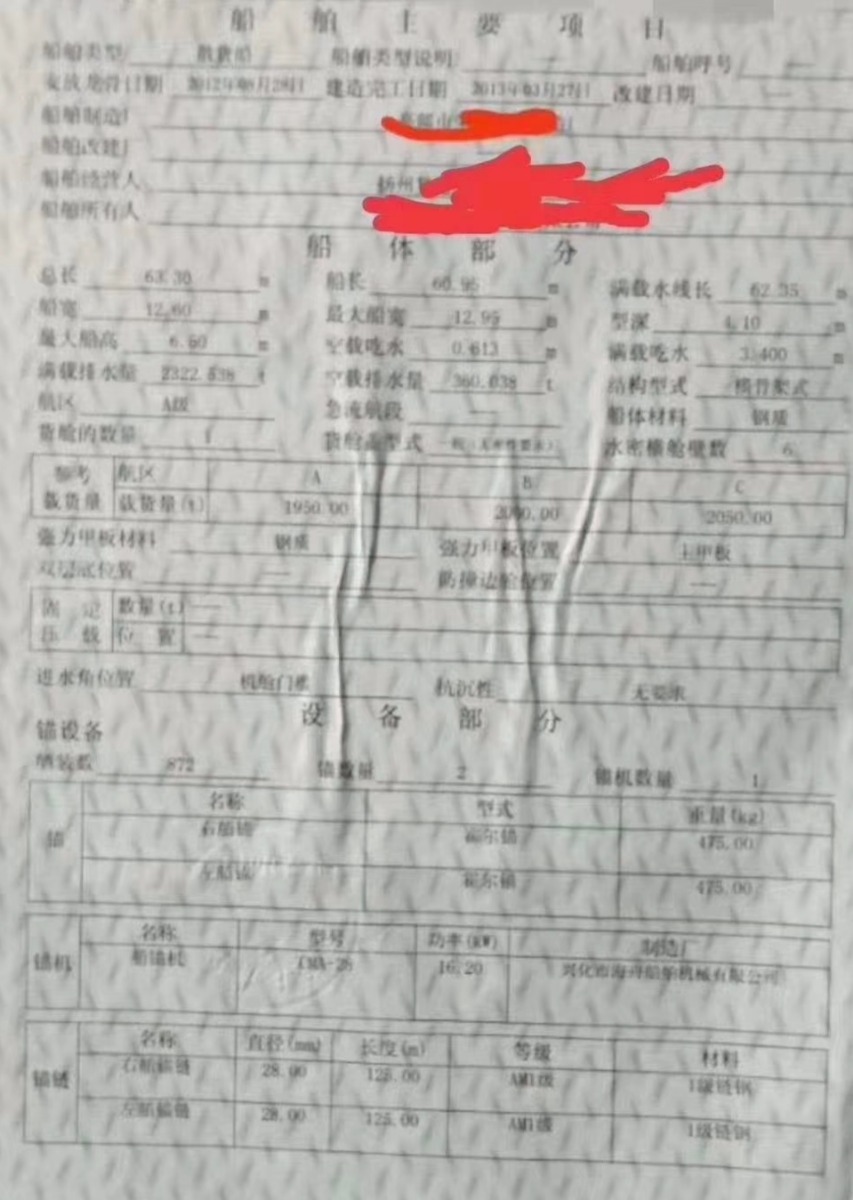 船 舶 主 要 项 目
船舶类型 散货船 船舶类型说明 — 船舶呼号 —
安放龙骨日期 2012年08月28日 建造完工日期 2013年03月27日 改建日期 —
船舶制造厂
船舶改建厂
船舶经营人 扬州
船舶所有人
船 体 部 分
总长 63.30 m 船长 60.95 m 满载水线长 62.35 m
船宽 12.60 m 最大船宽 12.95 m 型深 4.10 m
最大船高 6.60 m 空载吃水 0.613 m 满载吃水 3.400 m
满载排水量 2322.638 t 空载排水量 360.638 t 结构型式 横骨架式
航区 A级 急流航段 — 船体材料 钢质
货舱的数量 1 货舱盖型式 水密横舱壁数 6
参考 航区 A B C
载货量 载货量(t) 1950.00 2050.00
强力甲板材料 钢质 强力甲板位置 主甲板
双层底位置 — 防撞边舱位置 —
固 定 数量(t) —
压 载 位 置 —
进水角位置 机舱门槛 抗沉性 无要求
设 备 部 分
锚设备
舾装数 872 锚数量 2 锚机数量 1
名称 型式 重量(kg)
锚 右船锚 霍尔锚 475.00
左船锚 霍尔锚 475.00
名称 型号 功率(KW) 制造厂
锚机 船锚机 16.20 兴化市海舟船舶机械有限公司
名称 直径(mm) 长度(m) 等级 材料
锚链 右船锚链 28.00 125.00 AM1级 1级链钢
左船锚链 28.00 125.00 AM1级 1级链钢